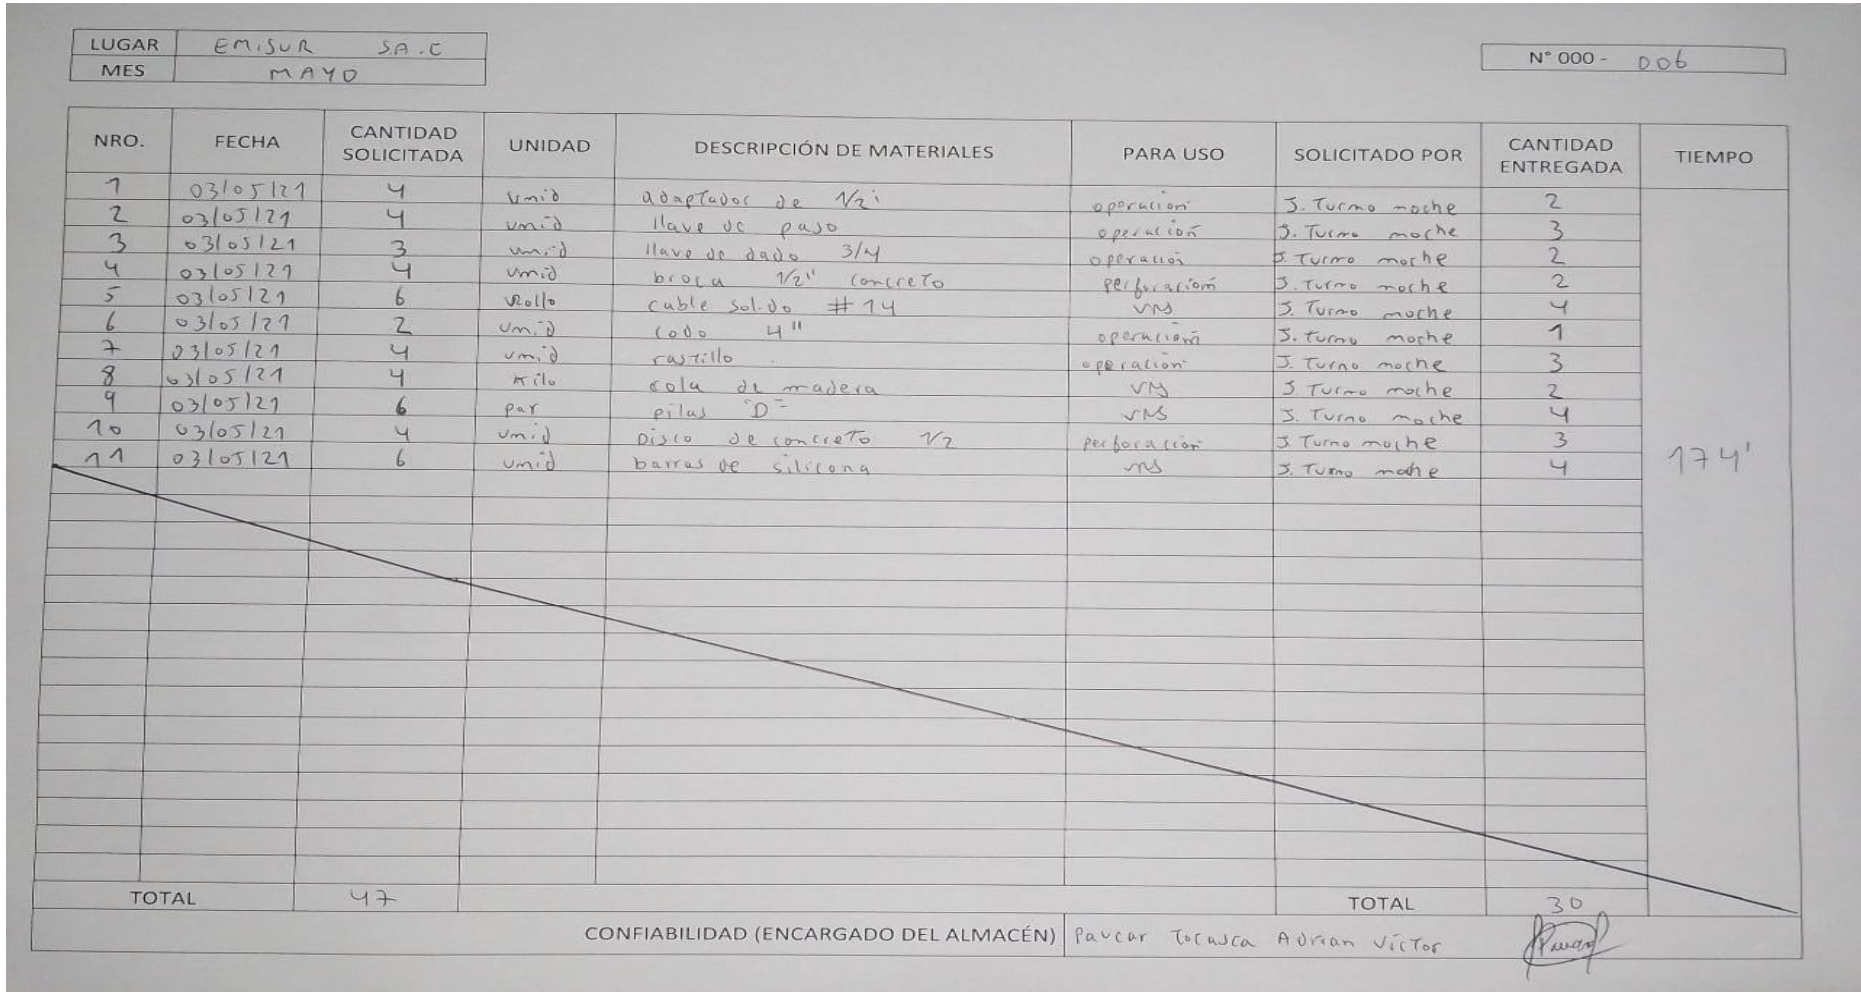 LUGAR EMISUR SA.C
MES MAYO
N° 000 - 006
NRO. FECHA CANTIDAD SOLICITADA UNIDAD DESCRIPCIÓN DE MATERIALES PARA USO SOLICITADO POR CANTIDAD ENTREGADA TIEMPO
1 03/05/21 4 unid adaptador de 1/2 operacion J. Turno noche 2
2 03/05/21 4 unid llave de paso operación J. Turno noche 3
3 03/05/21 3 unid llave de dado 3/4 operación J. Turno noche 2
4 03/05/21 4 unid broca 1/2" concreto perforación J. Turno noche 2
5 03/05/21 6 Rollo cable solido #14 J. Turno noche 4
6 03/05/21 2 unid codo 4" operación J. turno noche 1
7 03/05/21 4 unid rastillo operación J. Turno noche 3
8 03/05/21 4 Kilo cola de madera J. Turno noche 2
9 03/05/21 6 par pilas "D" J. Turno noche 4
10 03/05/21 4 unid Disco de concreto 1/2 perforación J. Turno noche 3
11 03/05/21 6 unid barras de silicona J. Turno noche 4
174'
TOTAL 47 TOTAL 30
CONFIABILIDAD (ENCARGADO DEL ALMACÉN) Paucar Adrian Víctor